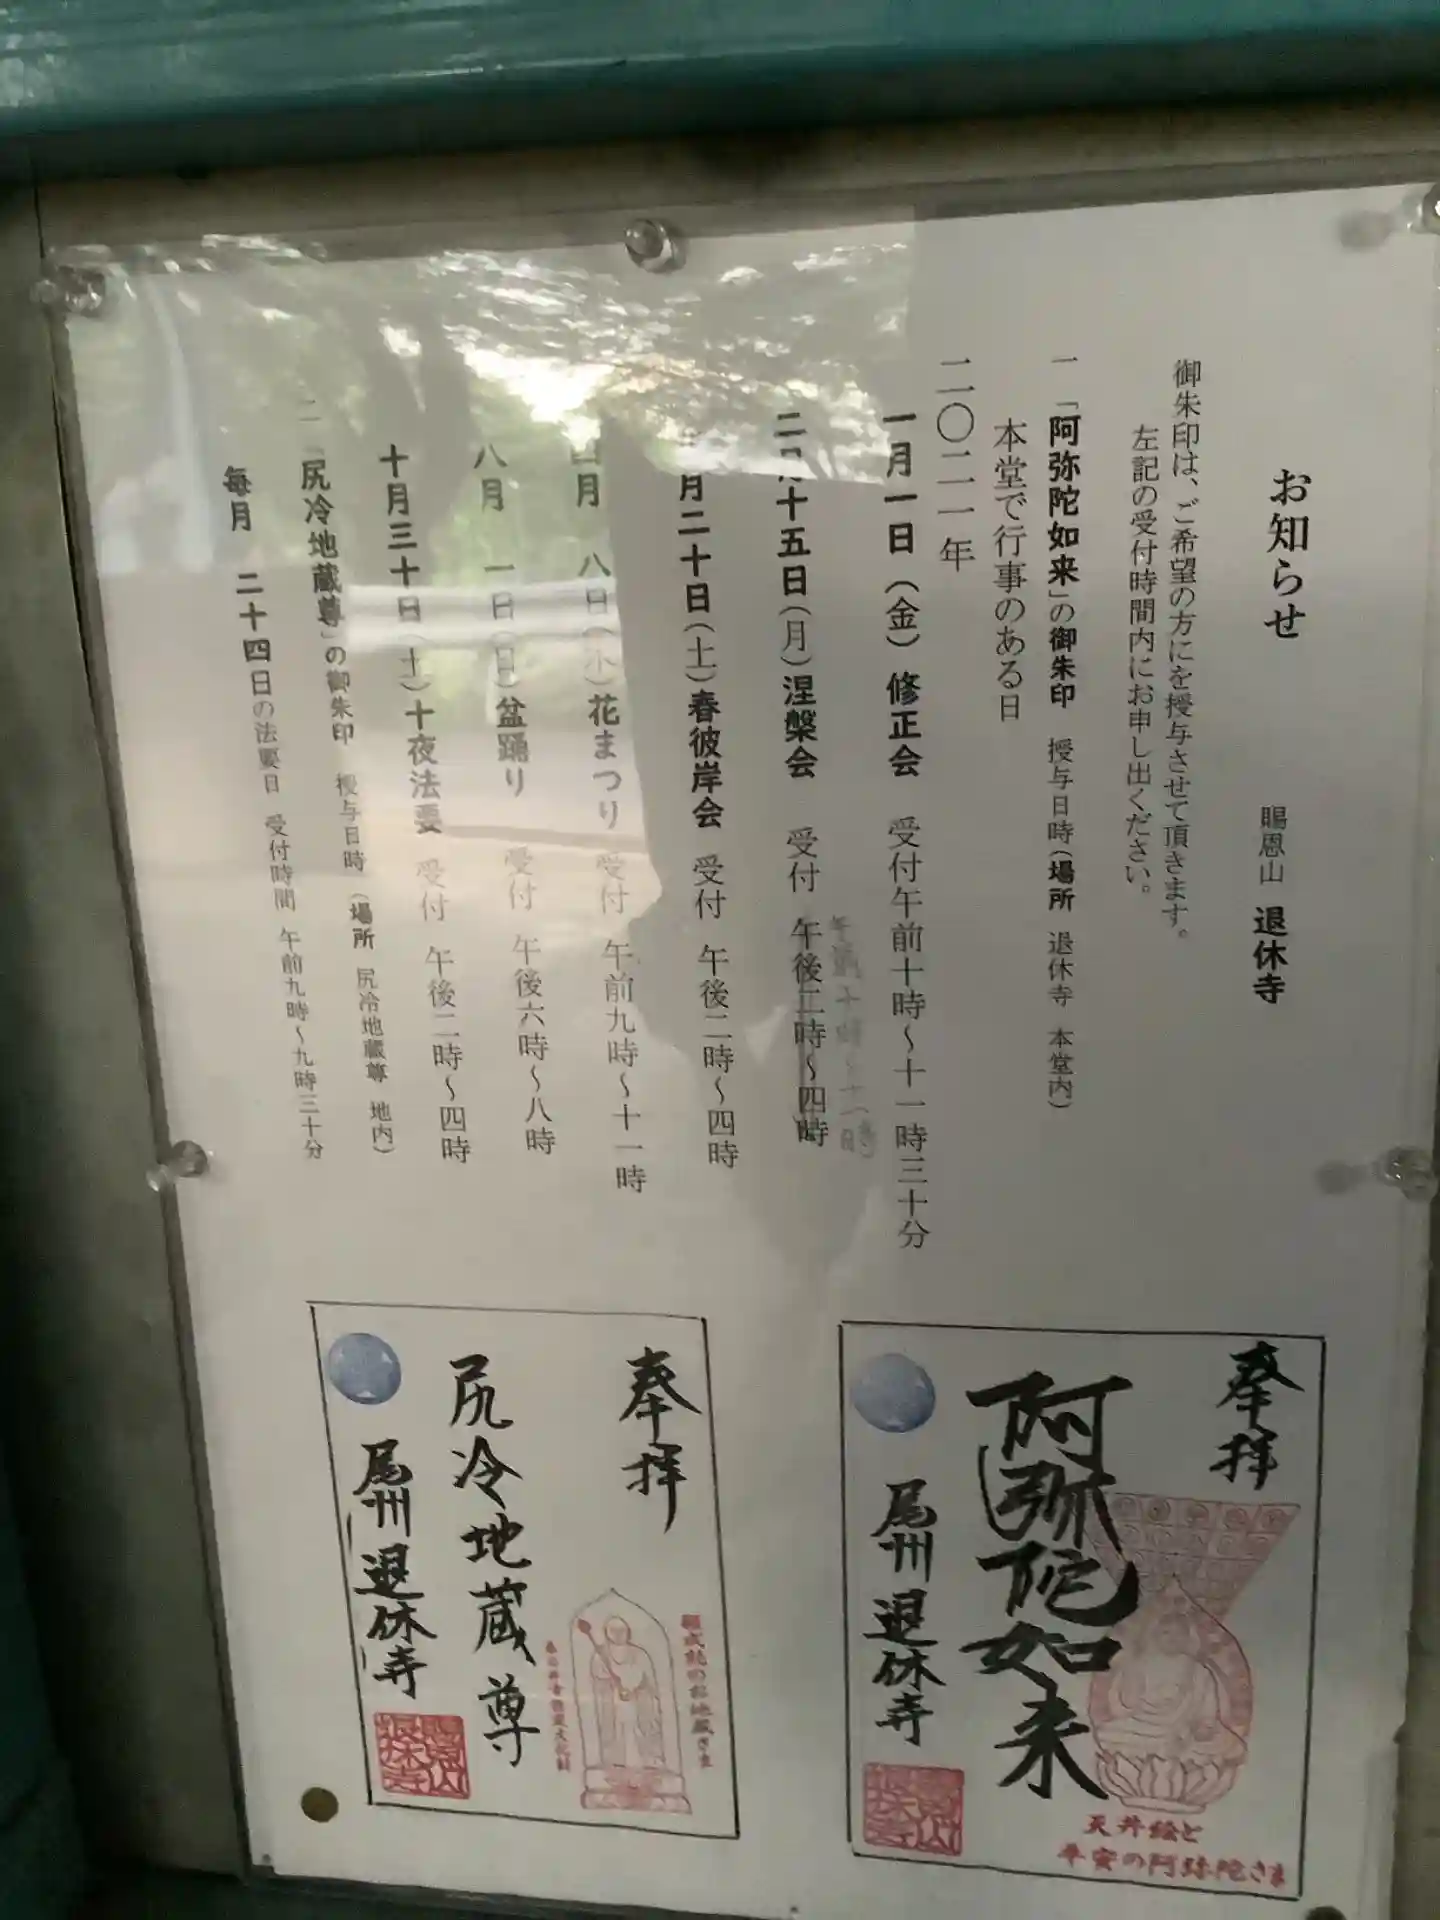 お知らせ
賜恩山 退休寺
御朱印は、ご希望の方にを授与させて頂きます。
左記の受付時間内にお申し出ください。
一「阿弥陀如来」の御朱印 授与日時(場所 退休寺 本堂内)
本堂で行事のある日
二〇二一年
一月一日(金)修正会 受付午前十時～十一時三十分
二月十五日(月)涅槃会 受付 午後二時～四時
月二十日(土)春彼岸会 受付 午後二時～四時
四月 八日(木)花まつり 受付 午前九時～十一時
八月 一日(日)盆踊り 受付 午後六時～八時
十月三十日(土)十夜法要 受付 午後二時～四時
二「尻冷地蔵尊」の御朱印 授与日時(場所 尻冷地蔵尊 地内)
毎月 二十四日の法要日 受付時間 午前九時～九時三十分
奉拝
阿弥陀如来
尾州 退休寺
天井絵と
平安の阿弥陀さま
奉拝
尻冷地蔵尊
尾州 退休寺